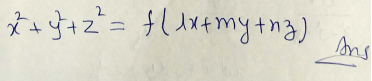 x² + y² + z² = f(lx+my+nz) Ans